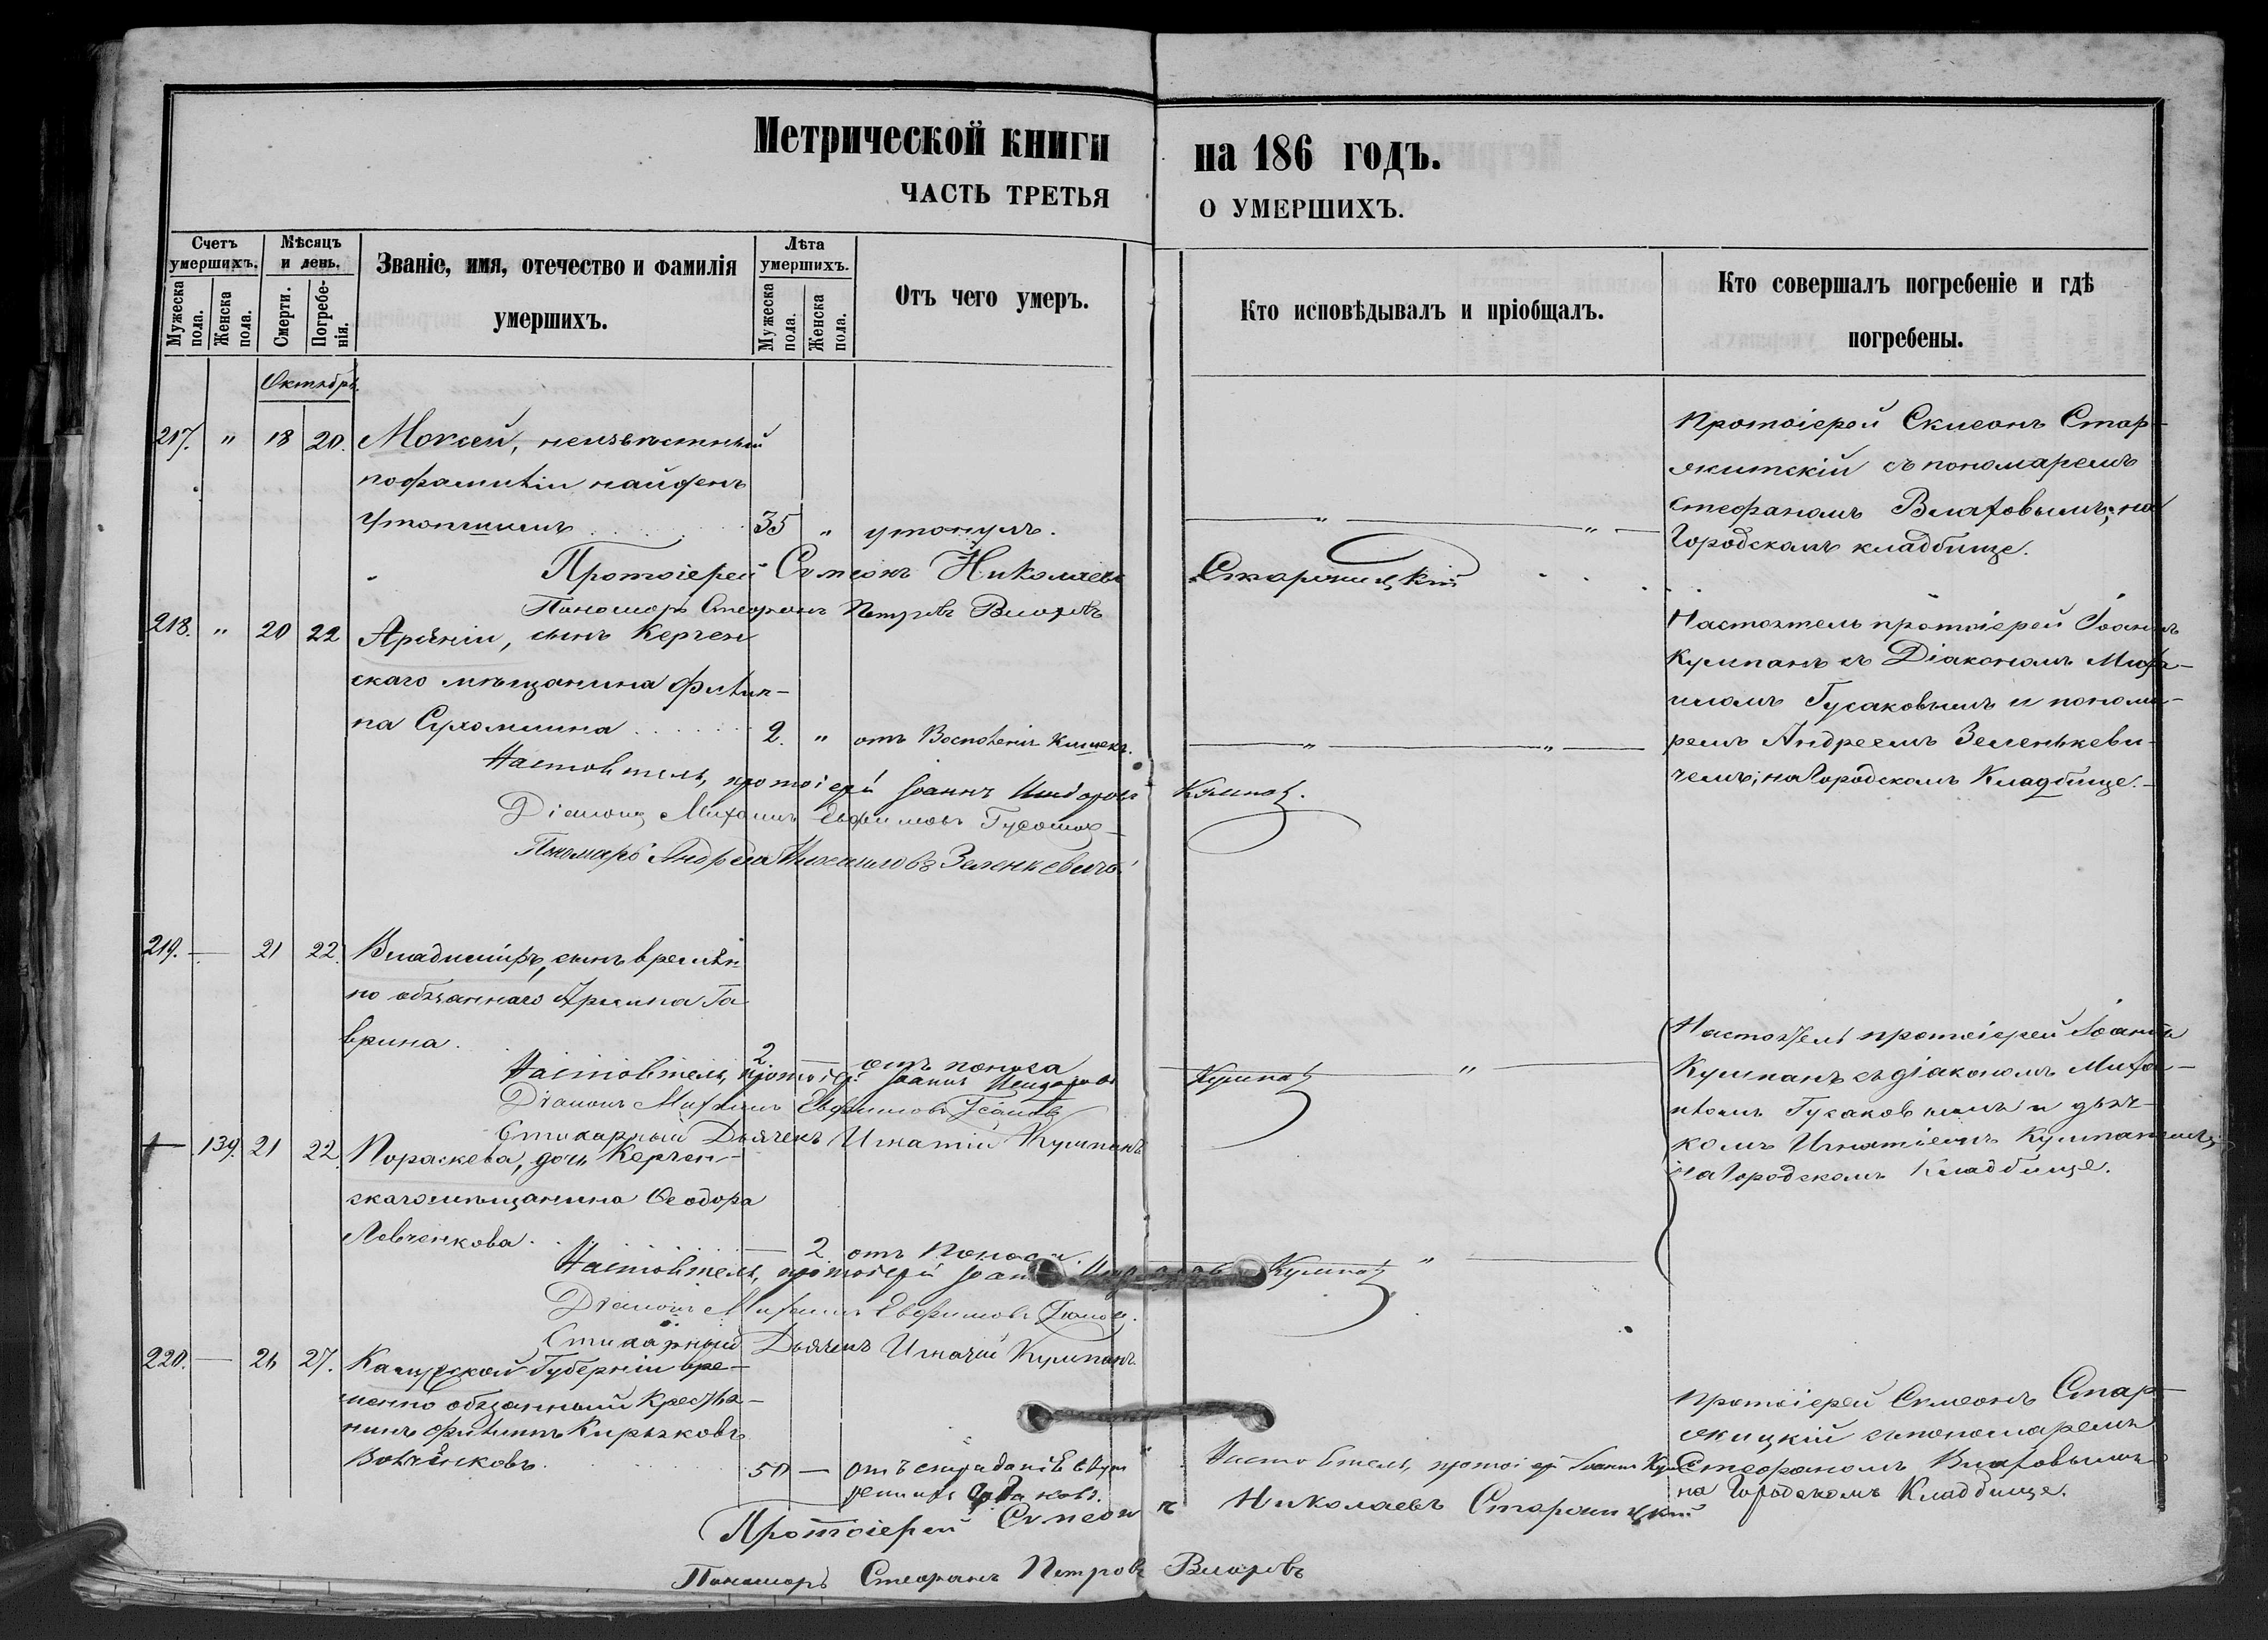 Метрической книги на 186 годъ.
ЧАСТЬ ТРЕТЬЯ О УМЕРШИХЪ.
Счетъ умершихъ.
Мужеска пола.
Женска пола.
Мѣсяцъ и день.
Смерти.
Погребенія.
Званіе, имя, отечество и фамилія
умершихъ.
Лѣта умершихъ.
Мужеска пола.
Женска пола.
Отъ чего умеръ.
Кто исповѣдывалъ и пріобщалъ.
Кто совершалъ погребеніе и гдѣ
погребены.
Октябрь.
217. " 18 20. Моксей, неизвѣстный
по фамиліи найденъ
утопшимъ 35 " утонулъ. " "
Протоіерей Сѵмеонъ Стар-
житскій съ пономаремъ
Стефаномъ Влаховымъ, на
Городскомъ кладбище.
Протоіерей Сѵмеонъ Николаевъ Старжицкій
Пономарь Стефанъ Петровъ Влаховъ
218. " 20 22 Арсеній, сынъ Керчен
скаго мѣщанина Филип-
па Сухомлина 2. " отъ Воспаленія Кишекъ. " "
Настоятель протоіерей Іоаннъ
Кумпанъ съ Діакономъ Миха-
иломъ Гусаковымъ и понома-
ремъ Андреемъ Зеленкеви-
чемъ; на Городскомъ Кладбище.
Настоятель, протоіерей Іоаннъ Исидоровъ Кумпанъ.
Діаконъ Михаилъ Евфимовъ Гусаковъ
Пономарь Андрей Михаиловъ Зеленкевичъ
219. — 21 22. Владиміръ, сынъ времен
но обязаннаго Ирина Га
врина. 2. — отъ поноса "
Настоятель, протоіерей Іоаннъ Исидоровъ Кумпанъ
Діаконъ Михаилъ Евфимовъ Гусаковъ
Стихарный Дьячекъ Игнатій Кумпанъ
Настоятель протоіерей Іоаннъ
Кумпанъ съ діакономъ Миха-
иломъ Гусаковымъ и дьяч-
комъ Игнатіемъ Кумпаномъ;
на Городскомъ Кладбище.
— 139. 21 22. Параскева, дочь Керчен-
скаго мѣщанина Ѳеодора
Левченкова. — 2 отъ Поноса. "
Настоятель, протоіерей Іоаннъ Исидоровъ Кумпанъ
Діаконъ Михаилъ Евфимовъ Гусаковъ.
Стихарный Дьячекъ Игнатій Кумпанъ
220. — 26 27. Калужской Губерніи вре-
менно обязанный Крестья-
нинъ Филиппъ Кирьяковъ
50 — отъ страданіе внут
реннихъ
Настоятель, протоіерей Іоаннъ
Протоіерей Сѵмеонъ Стар-
жицкій съ пономаремъ
Стефаномъ Влаховымъ
на Городскомъ Кладбище.
Протоіерей Сѵмеонъ Николаевъ Старжицкій
Пономарь Стефанъ Петровъ Влаховъ